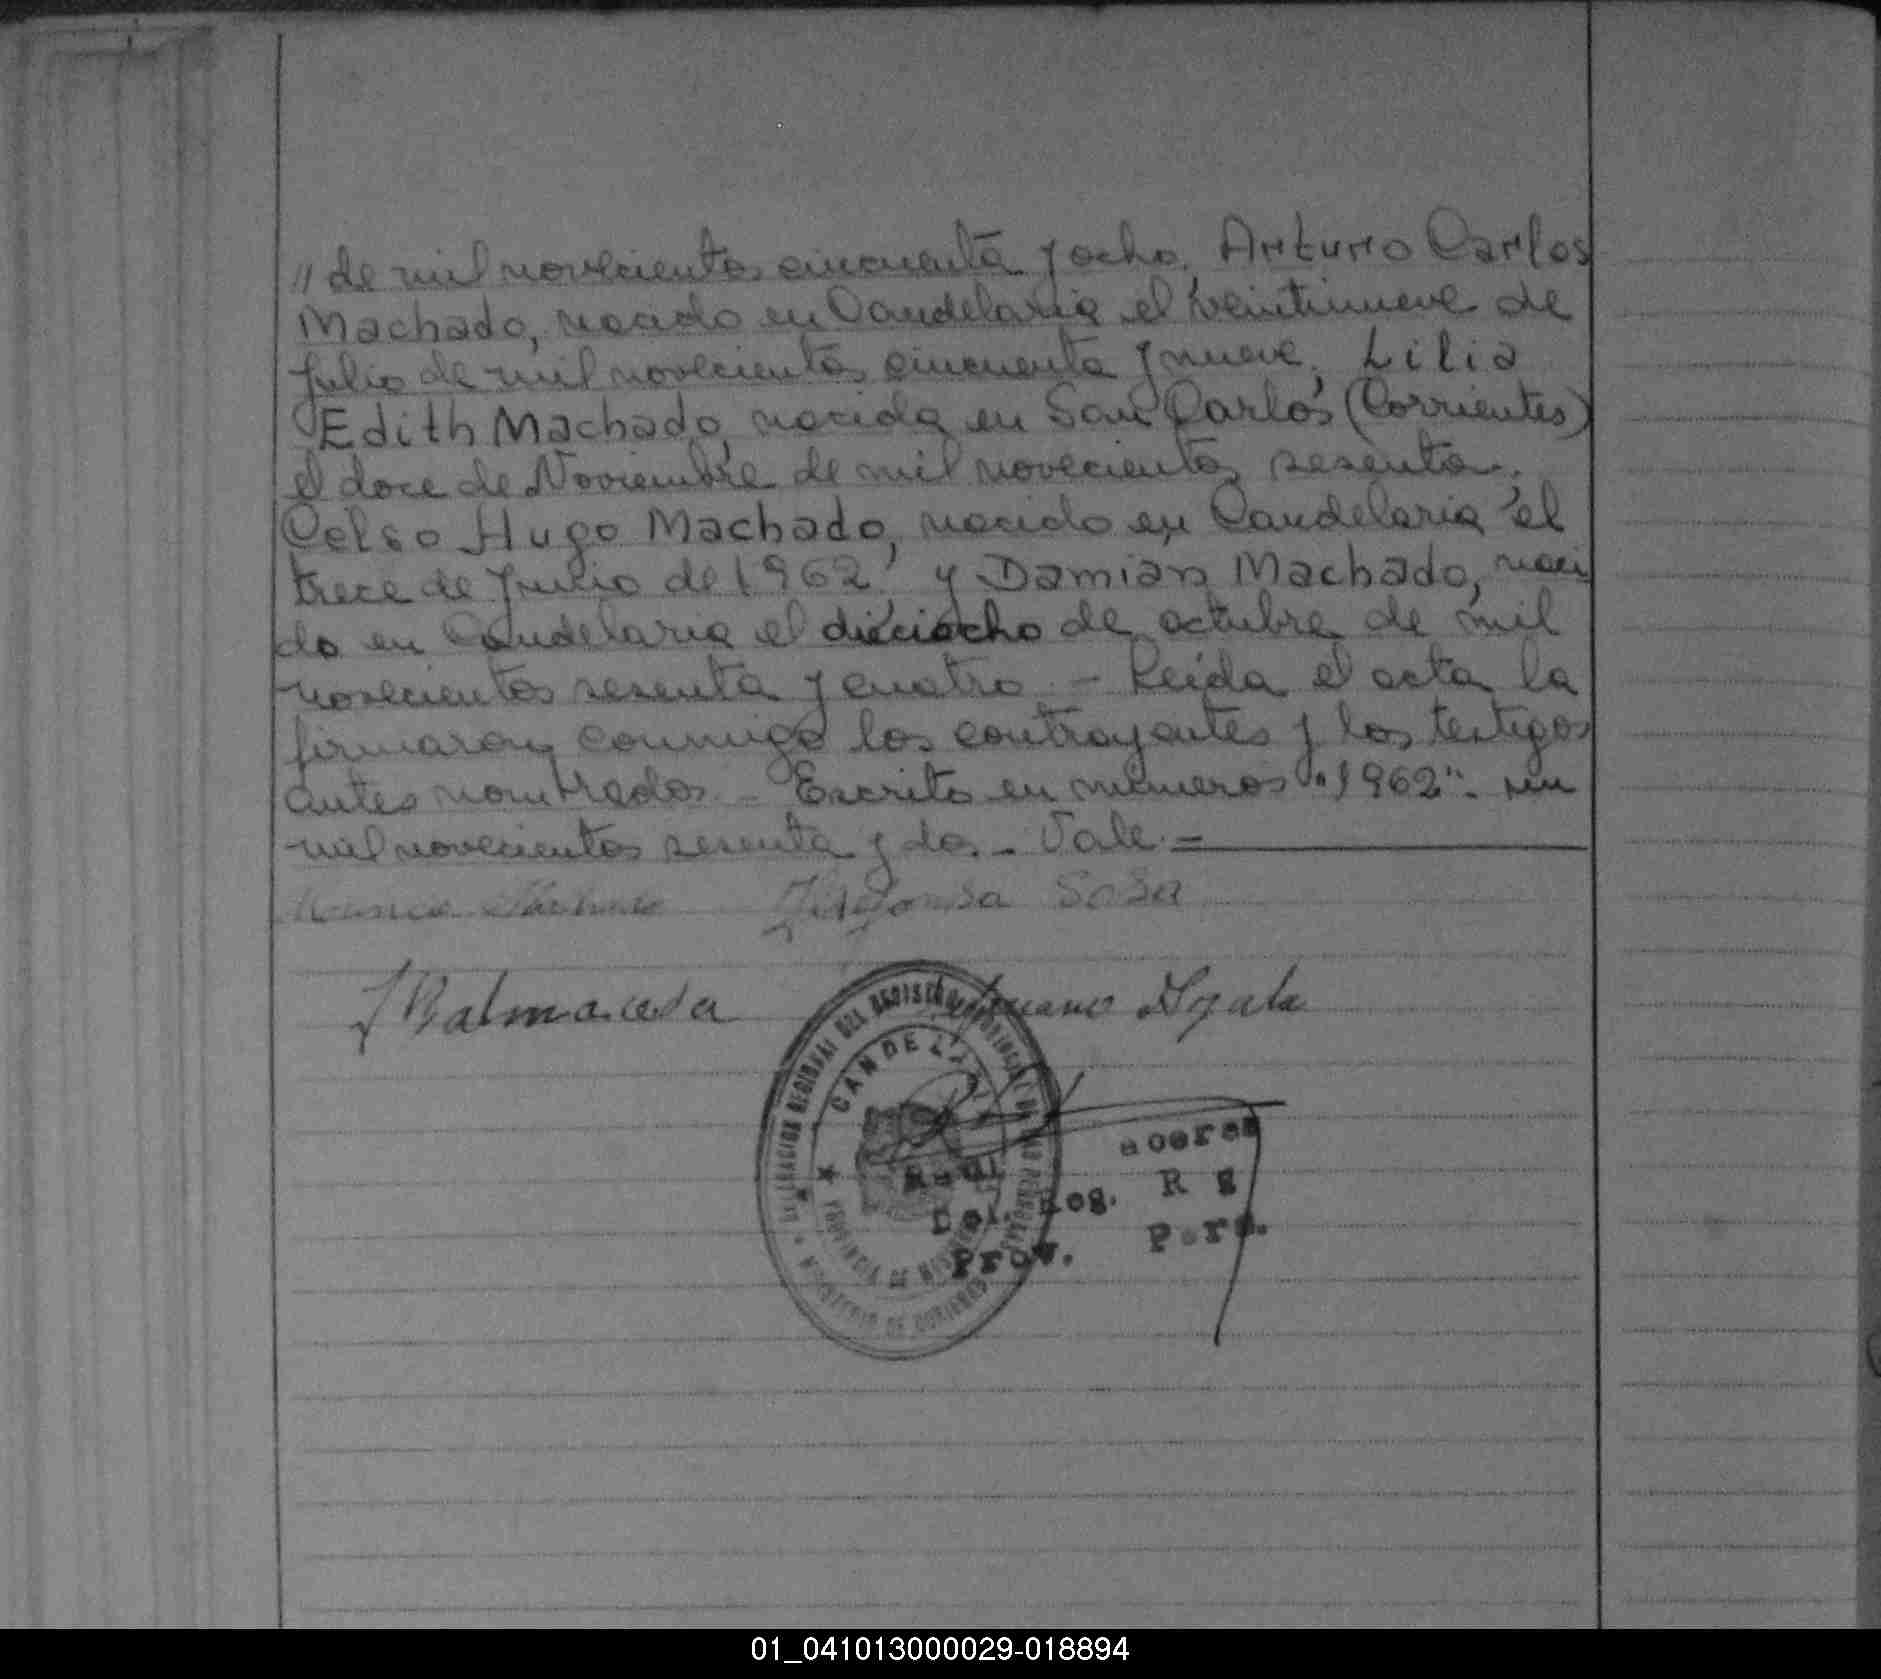 // de mil novecientos cincuenta y ocho, Arturo Carlos
Machado, nacido en Candelaria el veintinueve de
Julio de mil novecientos cincuenta y nueve, Lilia
Edith Machado, nacida en San Carlos (Corrientes)
el doce de Noviembre de mil novecientos sesenta,
Celso Hugo Machado, nacido en Candelaria el
trece de Junio de 1962 y Damián Machado, naci
do en Candelaria el dieciocho de octubre de mil
novecientos sesenta y cuatro.- Leída el acta la
firmaron conmigo los contrayentes y los testigos
antes nombrados.- Escrito en números "1962".
mil novecientos sesenta y dos.- Vale.-
Sosa
Balmaceda
Ayala
DELEGACION REGIONAL DEL REGISTRO PROVINCIAL DE LAS PERSONAS
CANDELARIA
PROVINCIA DE MISIONES
MINISTERIO DE GOBIERNO
Raul
Del. Reg. R g
Prov. Pers.
01_041013000029-018894